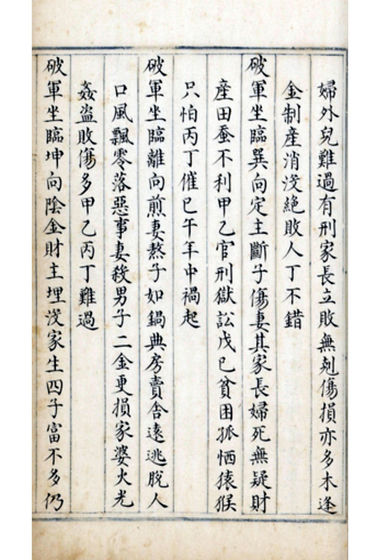 婦外兒難過有刑家長立敗無剋傷損亦多木逢
金制產消淺絕敗人丁不錯
破軍坐臨巽向定主斷子傷妻其家長婦死無疑財
產田蚕不利甲乙官刑獄訟戊巳貧困孤恓猿猴
只怕丙丁催巳午年中禍起
破軍坐臨離向煎妻熬子如鍋典房賣舍遠逃脫人
口風飄零落惡事妻殺男子二金更損家婆火光
姦盜敗傷多甲乙丙丁難過
破軍坐臨坤向陰金財主埋淺家生四子富不多仍